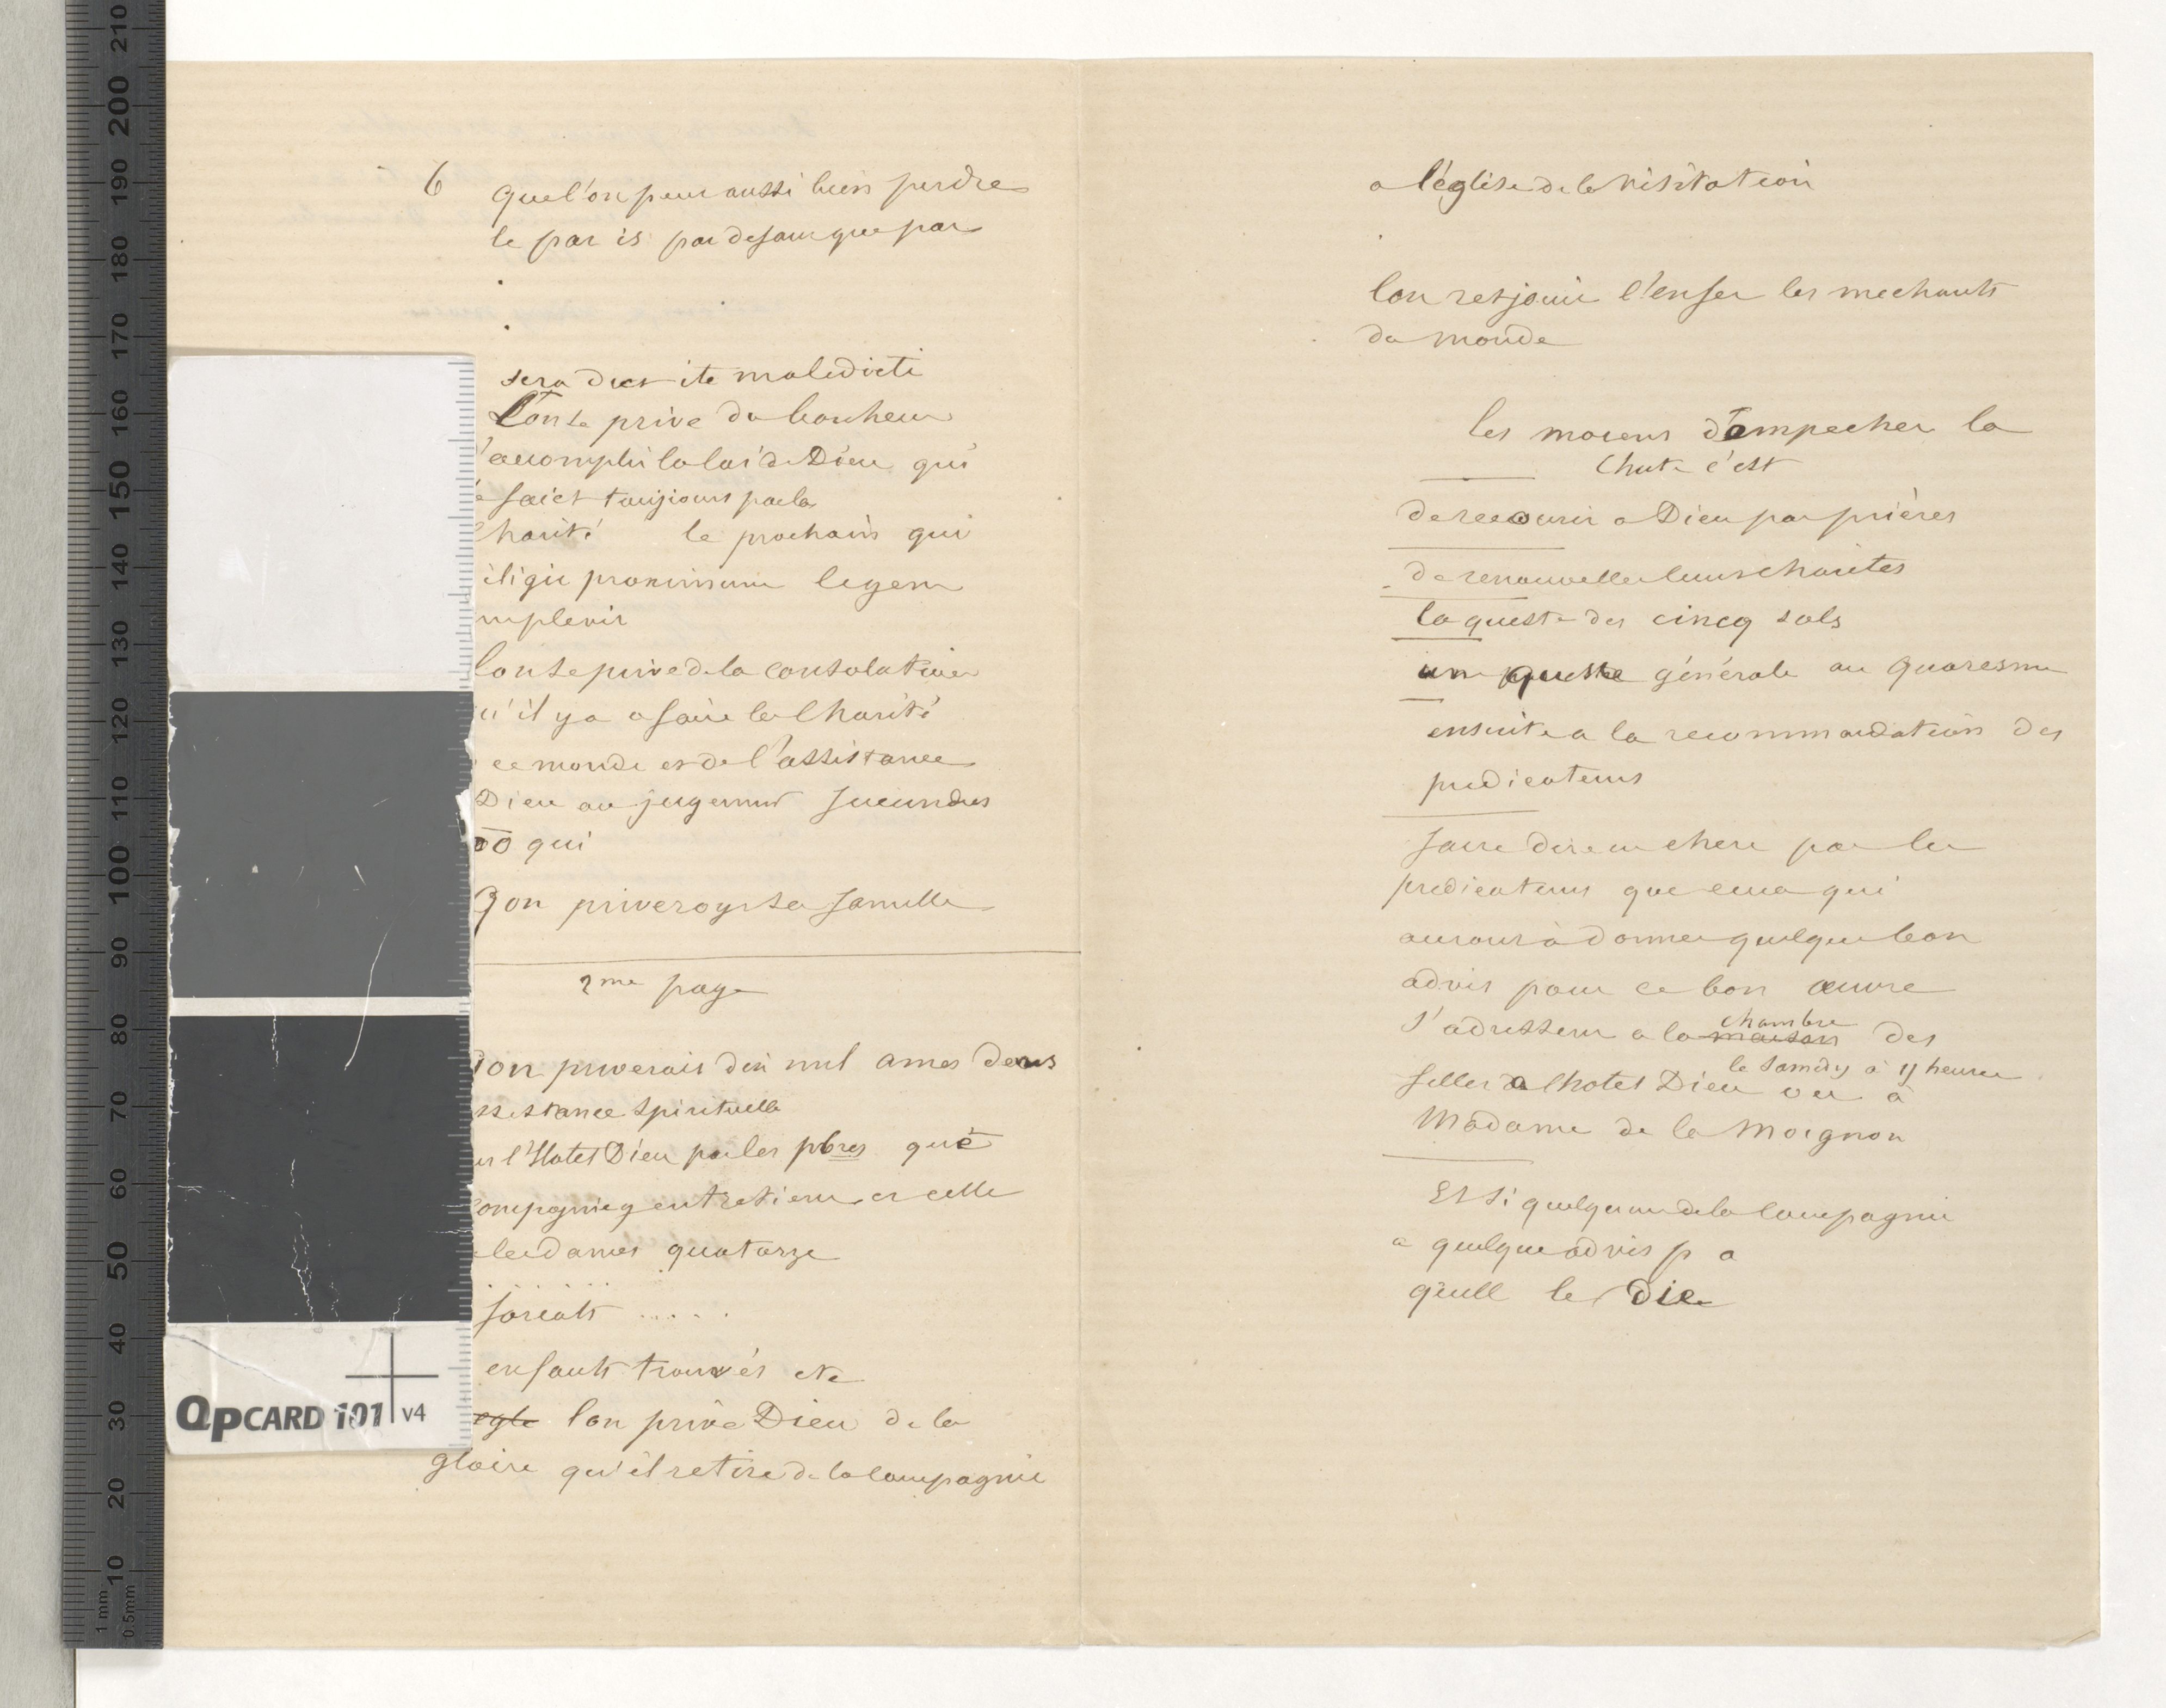 6 que l'on peut aussi bien perdre
le par is par defaut que par
sera dict ite maledicti
L'on se prive du bonheur
'accomplir la loi de Dieu qui
faict toujours par la
harité le prochain qui
iligit proximum legem
mplevit
l'on se prive de la consolation
u'il y a a faire la charité
ce monde et de l'assistance
Dieu au jugement Jucundus
qui
on priveroit sa famille
2me page
on priverait dix mil ames deus
ssistance spirituelle
l'Hotel Dieu par les pbres que
compagnie y entretient et celle
les dames quatorze
forcats .....
enfants trouvés etc
egle l'on prive Dieu de la
gloire qu'il retire de la compagnie
a l'église de la visitation
l'on resjouit l'enfer les mechants
du monde
les moiens d'empecher la
chute c'est
de recourir a Dieu par prières
de renouveller leurs charites
la queste des cincq sols
un queste générale au Quaresme
ensuite a la recommandation des
predicateurs
faire dire en chere par les
predicateurs que ceux qui
auront à donner quelque bon
advis pour ce bon œuvre
s'adressent a la maison chambre des
filles a lhotel Dieu le samedy à 11 heures ou à
Madame de la Moignon
Et si quelqu'un de la Compagnie
a quelque advis p a
quell le die
QpCARD 101 v4
210
200
190
180
170
160
150
140
130
120
110
100
90
80
70
60
50
40
30
20
10
1 mm
0.5mm